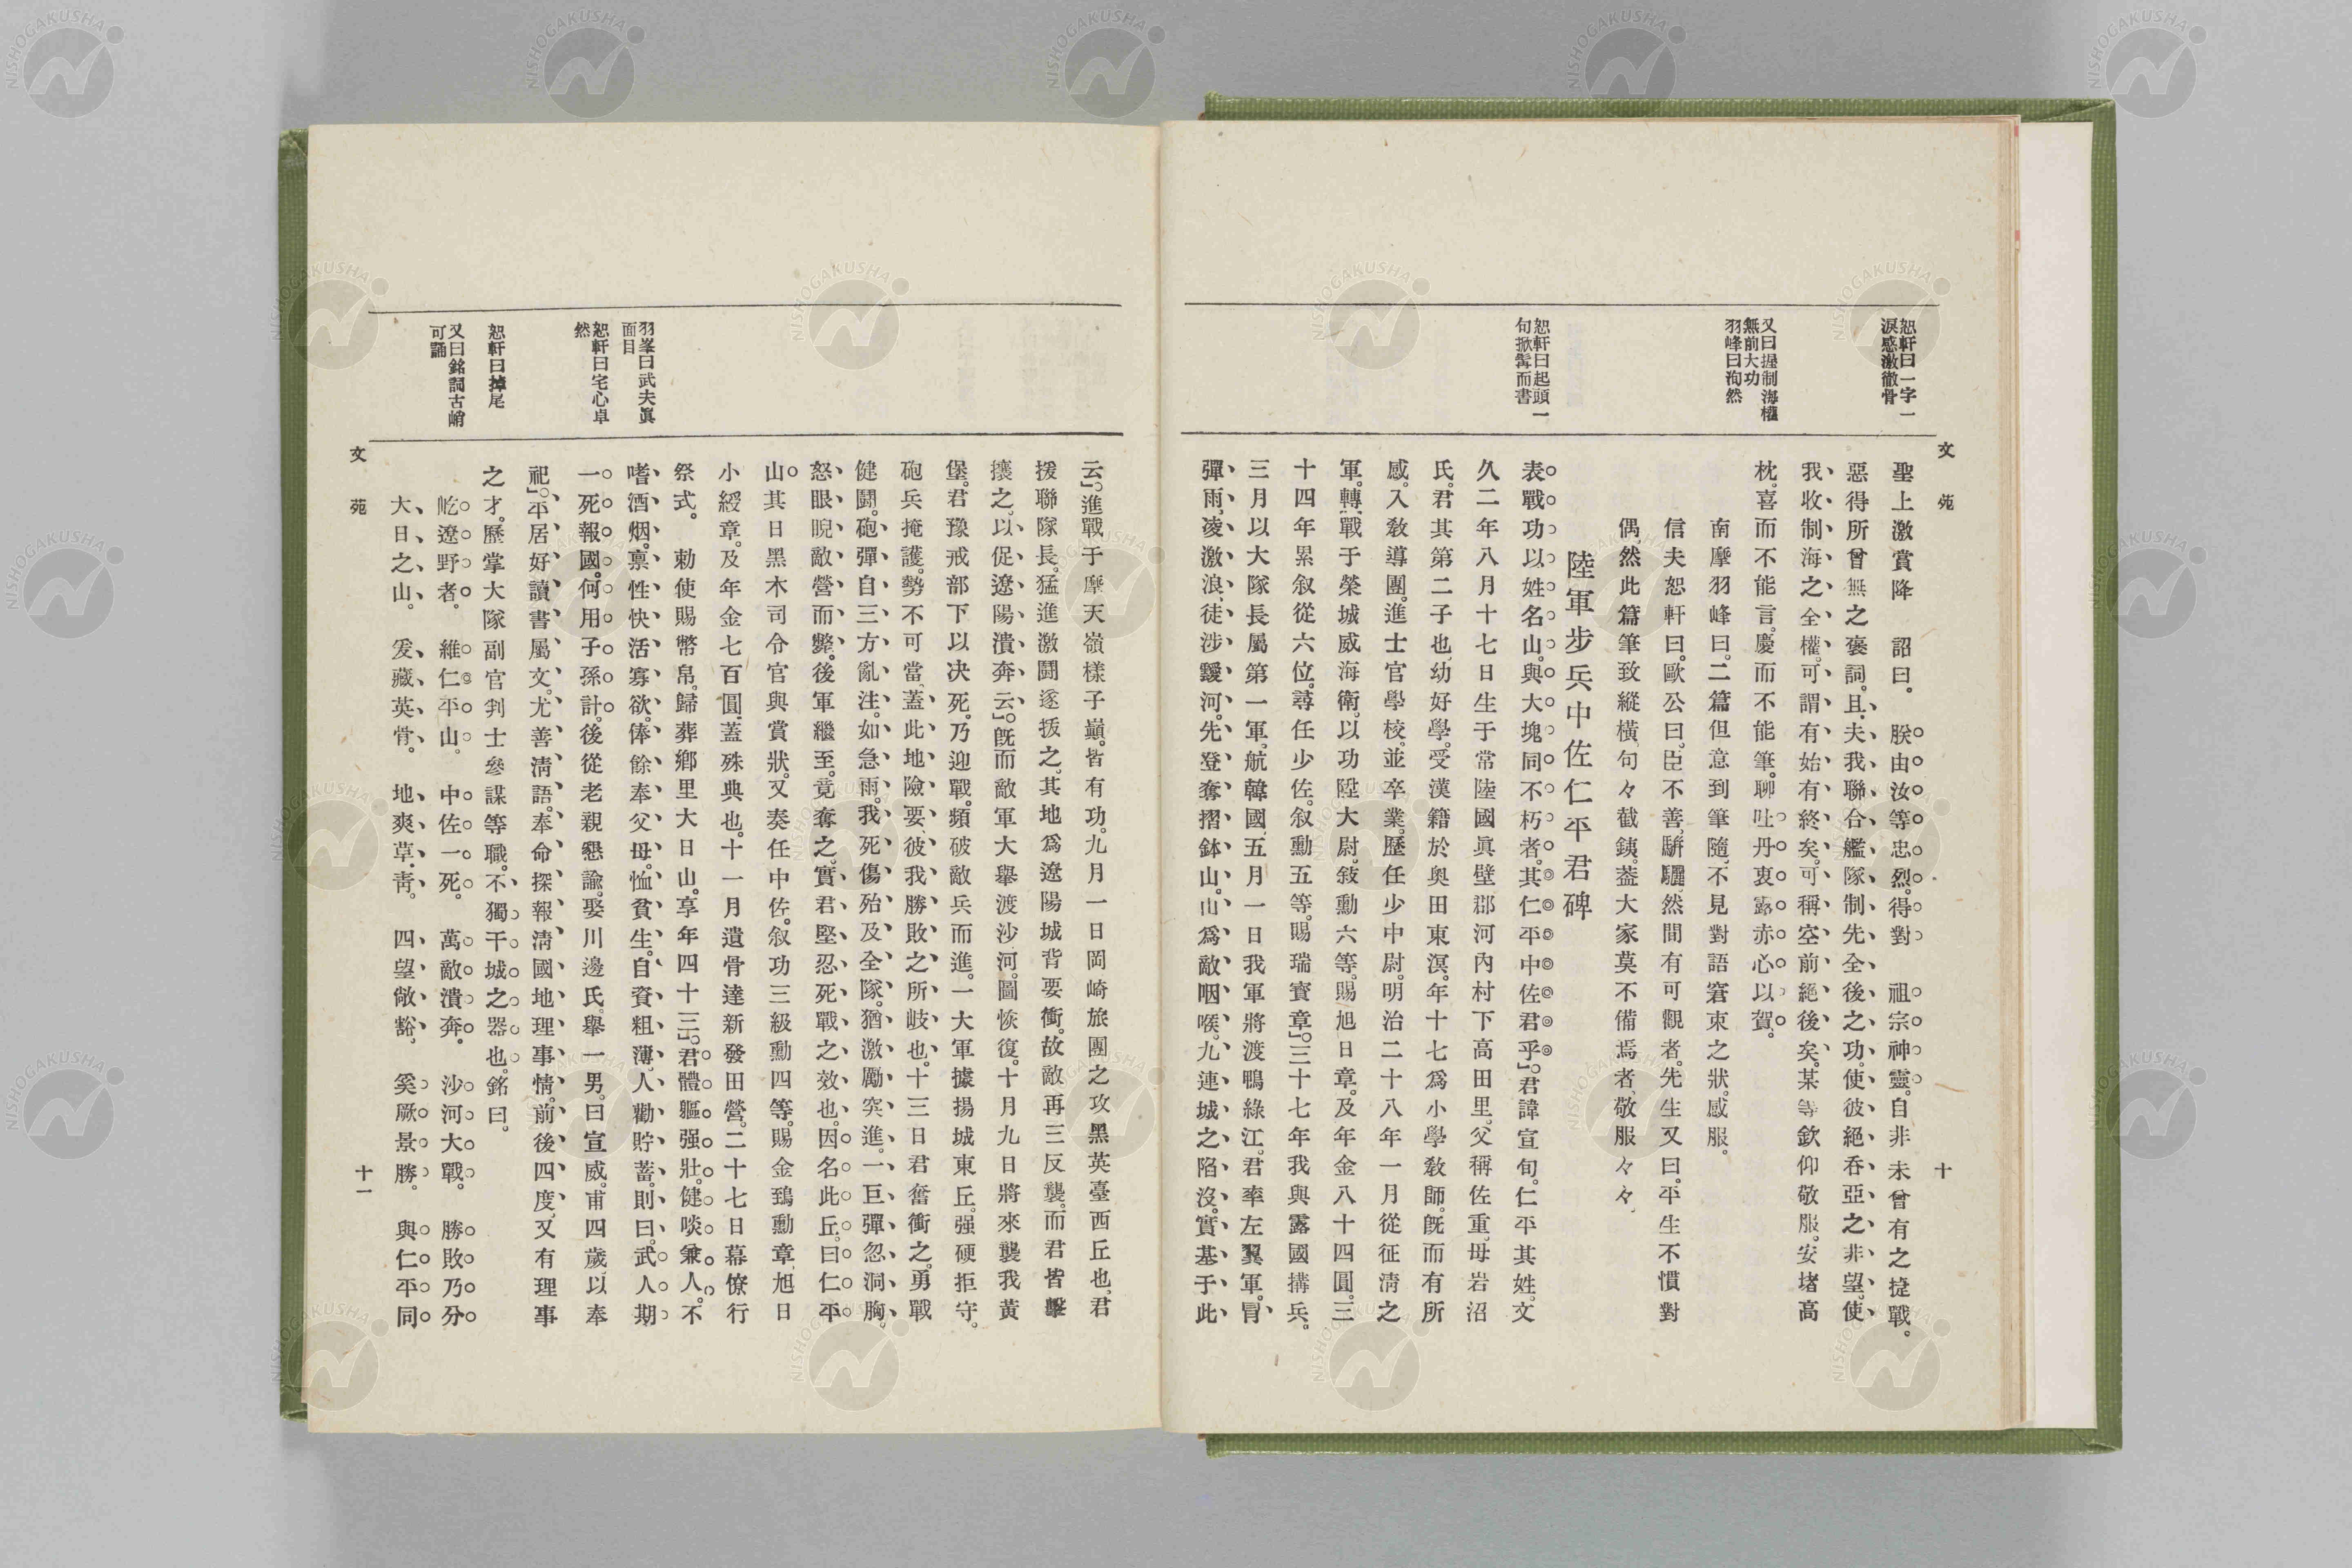 文苑
十
恕軒曰一字一
淚感激徹骨
又曰握制海權
無前大功
羽峰曰洵然
恕軒曰起頭一
句掀髯而書
聖上激賞降　詔曰。　朕由汝等忠烈。得對　祖宗神靈。自非未曾有之捷戰。
惡得所曾無之褒詞。且夫我聯合艦隊。制先全後之功。使彼絕吞亞之非望。使
我收制海之全權。可謂有始有終矣。可稱空前絕後矣。某等欽仰敬服。安堵高
枕。喜而不能言。慶而不能筆。聊吐丹衷。露赤心以賀。
南摩羽峰曰。二篇但意到筆隨。不見對語窘束之狀。感服。
信夫恕軒曰。歐公曰、臣不善騈驪。然間有可觀者。先生又曰。平生不慣對
偶、然此篇筆致縱橫、句々截鐵。蓋大家莫不備焉者、敬服々々、
陸軍步兵中佐仁平君碑
表戰功以姓名山。與大塊同不朽者。其仁平中佐君乎」。君諱宣旬。仁平其姓。文
久二年八月十七日生于常陸國眞壁郡河內村下高田里。父稱佐重。母岩沼
氏。君其第二子也、幼好學。受漢籍於奥田東溟。年十七爲小學敎師。旣而有所
感。入敎導團。進士官學校。並卒業。歷任少中尉。明治二十八年一月從征淸之
軍。轉戰于榮城威海衛。以功陞大尉。敍勳六等。賜旭日章。及年金八十四圓。三
十四年累叙從六位。尋任少佐。叙勳五等。賜瑞寶章」。三十七年我與露國搆兵。
三月以大隊長屬第一軍。航韓國。五月一日我軍將渡鴨綠江。君率左翼軍。冒
彈雨、凌激浪、徒涉靉河。先登奪摺鉢山。山爲敵咽喉。九連城之陷沒。實基于此
羽峯曰武夫眞
面目
恕軒曰宅心卓
然
恕軒曰掉尾
又曰銘詞古峭
可誦
云」。進戰于摩天嶺樣子巓。皆有功。九月一日岡崎旅團之攻黑英臺西丘也、君
援聯隊長。猛進激鬪遂拔之、其地爲遼陽城背要衝。故敵再三反襲。而君皆擊
攘之、以促遼陽潰奔云」。旣而敵軍大舉渡沙河。圖恢復。十月九日將來襲我黃
堡。君豫戒部下以决死。乃迎戰。頻破敵兵而進。一大軍據揚城東丘。强硬拒守。
砲兵掩護。勢不可當、蓋此地險要、彼我勝敗之所岐也。十三日君奮衝之。勇戰
健鬪。砲彈自三方亂注。如急雨。我死傷殆及全隊。猶激勵突進。一巨彈忽洞胸。
怒眼睨敵營而斃。後軍繼至。竟奪之、實君堅忍死戰之效也、因名此丘。曰仁平
山。其日黑木司令官與賞狀。又奏任中佐。叙功三級勳四等。賜金鵄勳章、旭日
小綬章。及年金七百圓、蓋殊典也。十一月遺骨達新發田營。二十七日幕僚行
祭式。　勅使賜幣帛。歸葬鄕里大日山。享年四十三」。君體軀强壯。健啖兼人。不
嗜酒烟。禀性快活寡欲。俸餘奉父母。恤貧生。自資粗薄。人勸貯蓄。則曰。武人期
一死報國。何用子孫計。後從老親懇諭。娶川邊氏。擧一男。曰宣威。甫四歲、以奉
祀」。平居好讀書屬文。尤善淸語。奉命探報淸國地理事情。前後四度、又有理事
之才。歷掌大隊副官判士參謀等職。不獨干城之器也。銘曰。
屹遼野者。　維仁平山。　中佐一死。　萬敵潰奔。　沙河大戰。　勝敗乃分
大日之山。　爰藏英骨。　地爽草靑。　四望敞豁。　奚厥景勝。　與仁平同
文苑
十一